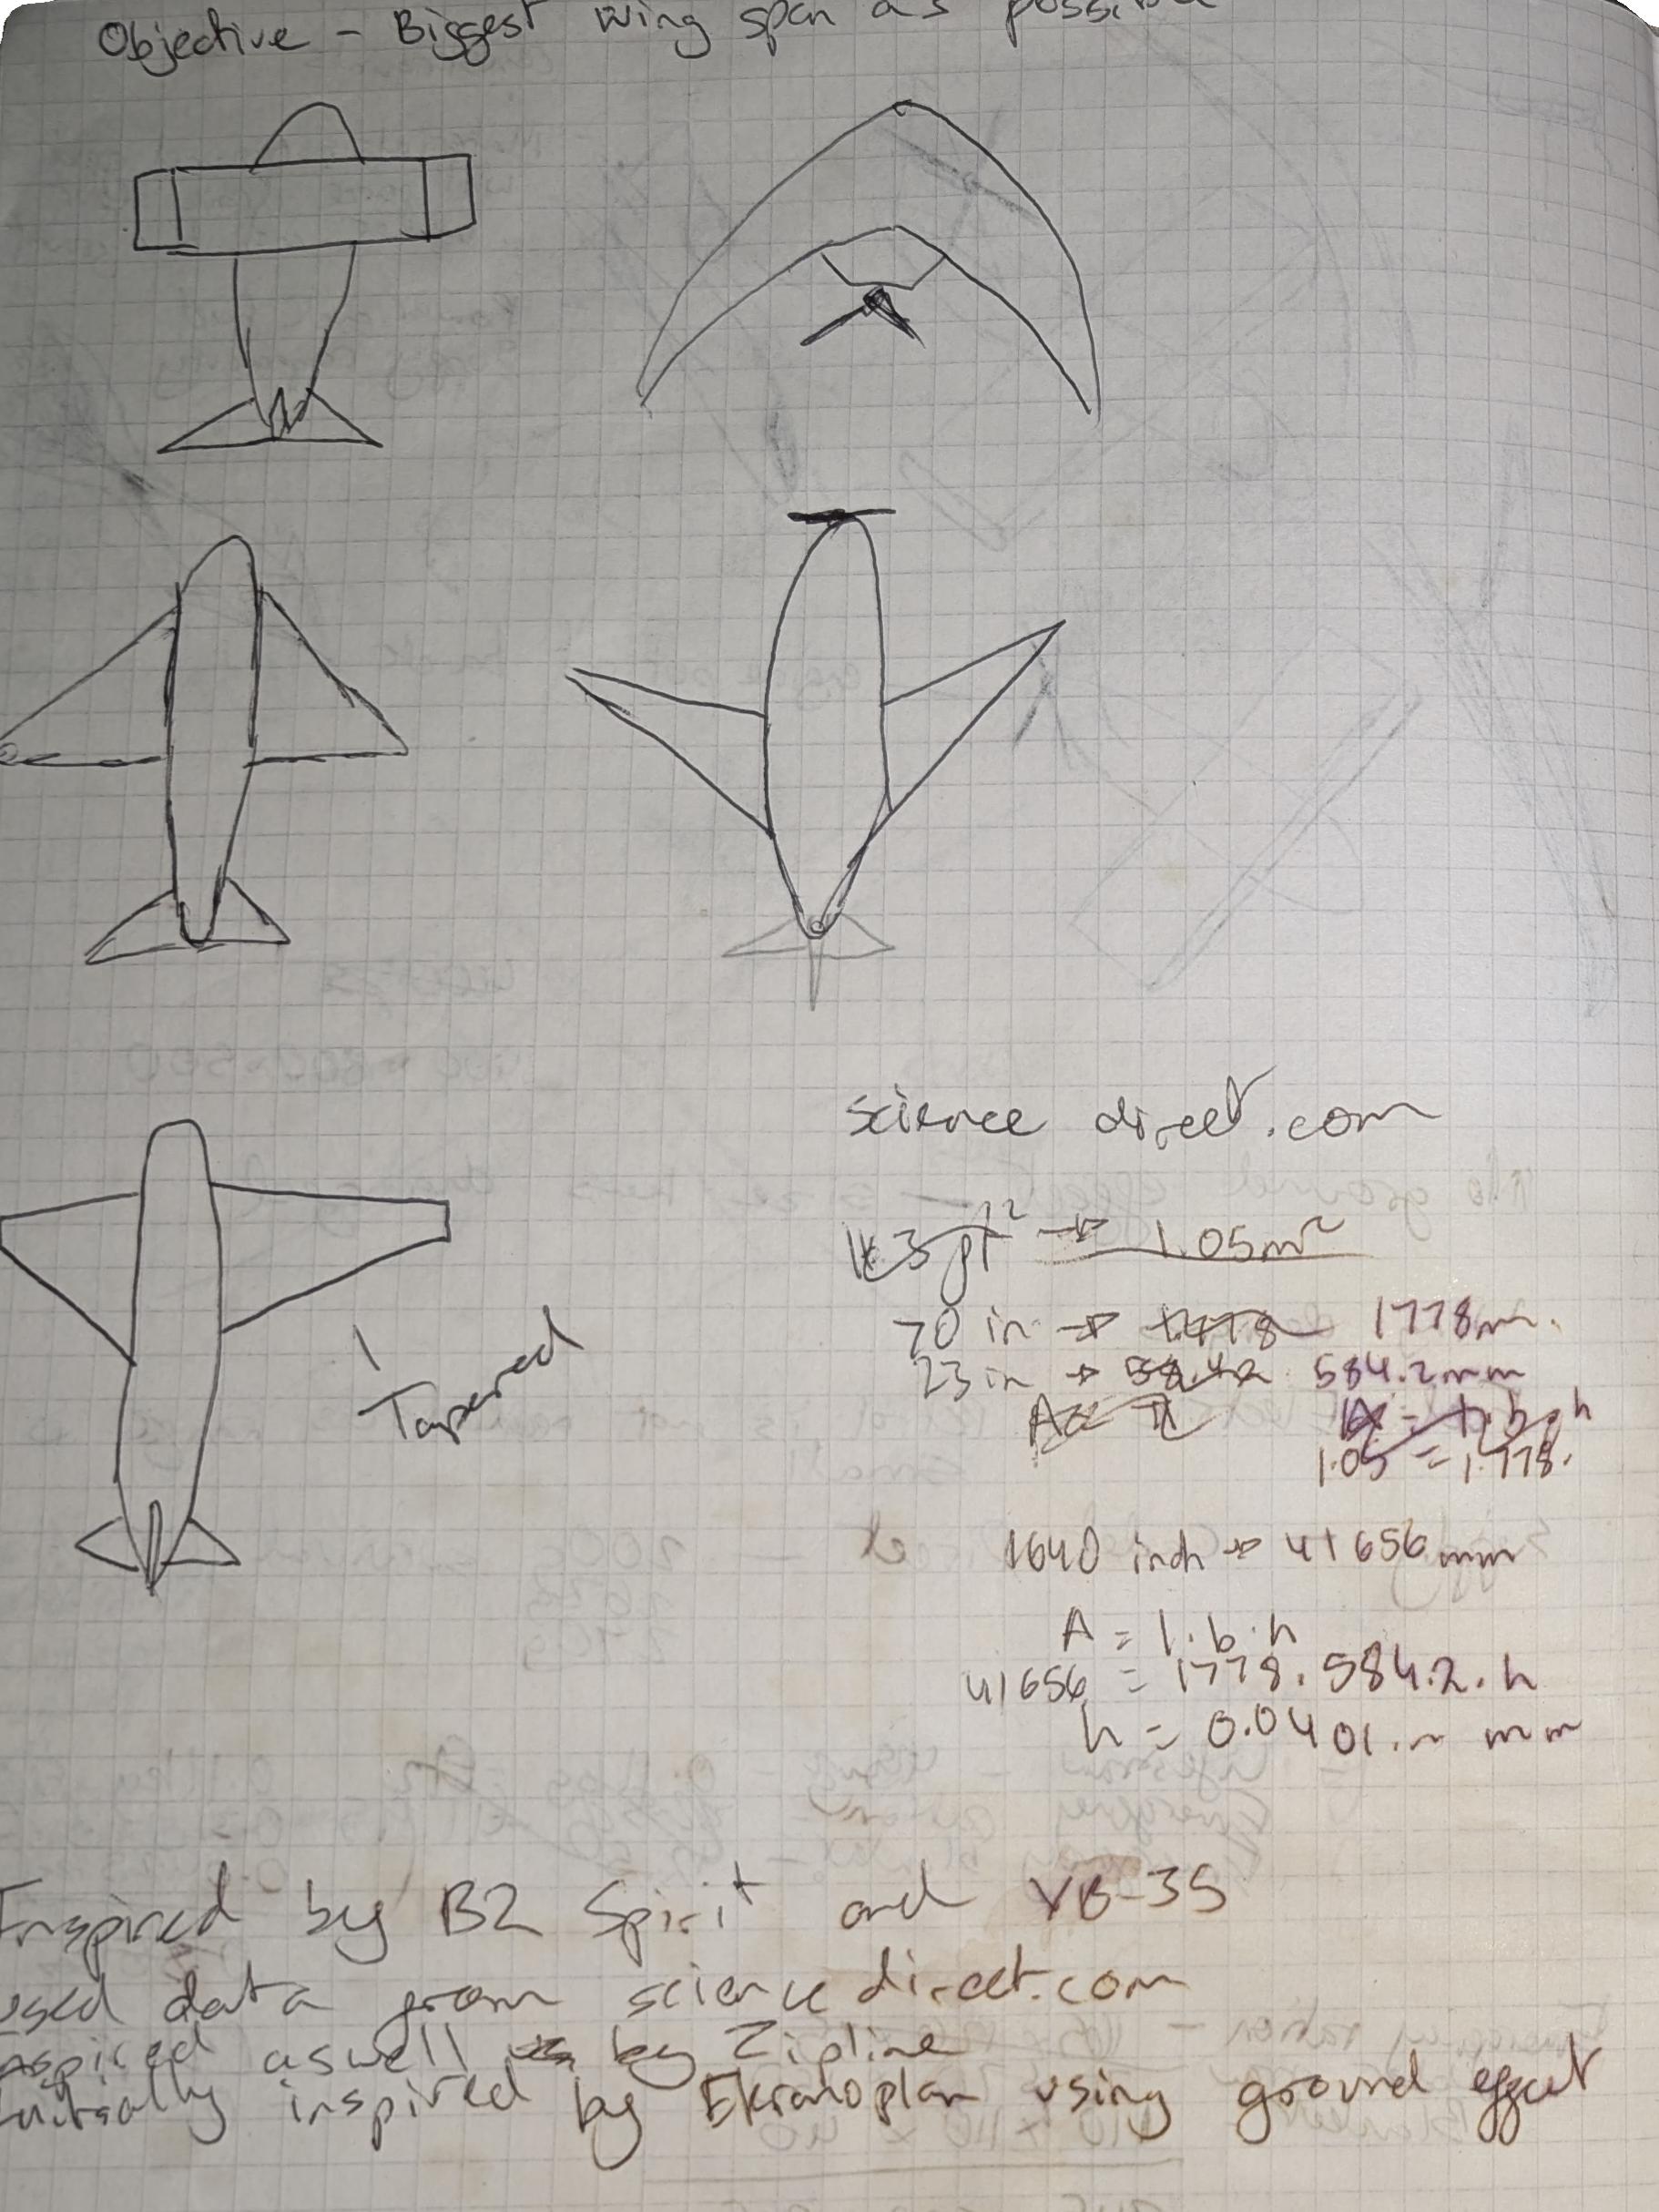 Objective - Biggest wing span as possible
science direct.com
1778m.
70 in →
23 in → 584.2mm
→ 1.05m²
1.05 = 1.778.
Tapered
1640 inch → 41656 mm
A = l.b.h
41656 = 1778.584.2.h
h = 0.0401.. mm
Inspired by B2 Spirit and YB-35
used data from science direct.com
inspired aswell by Zipline
initially inspired by Ekranoplan using ground effect